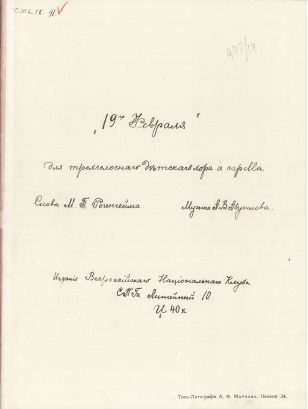 "19го Февраля"
для трехголоснаго дѣтскаго хора a capella
Слова М. П. Розенгейма Музыка
Изданіе Всероссійскаго Національнаго Клуба
СПб. Литейный 10
Ц 40 к.
Типо-Литографія А. Ф. Маркова, Невскій 34.